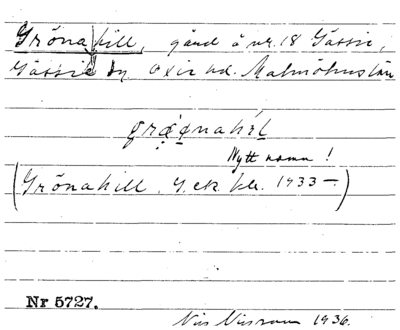 Gröna kill, gård å nr. 18 Gässie,
Gässie by Oxie hd. Malmöhus län
grǿ̀nahil
Nytt namn!
(Grönahill. G. ek. kb. 1933 —)
Nr 5727.
Nils Nilsson 1936.